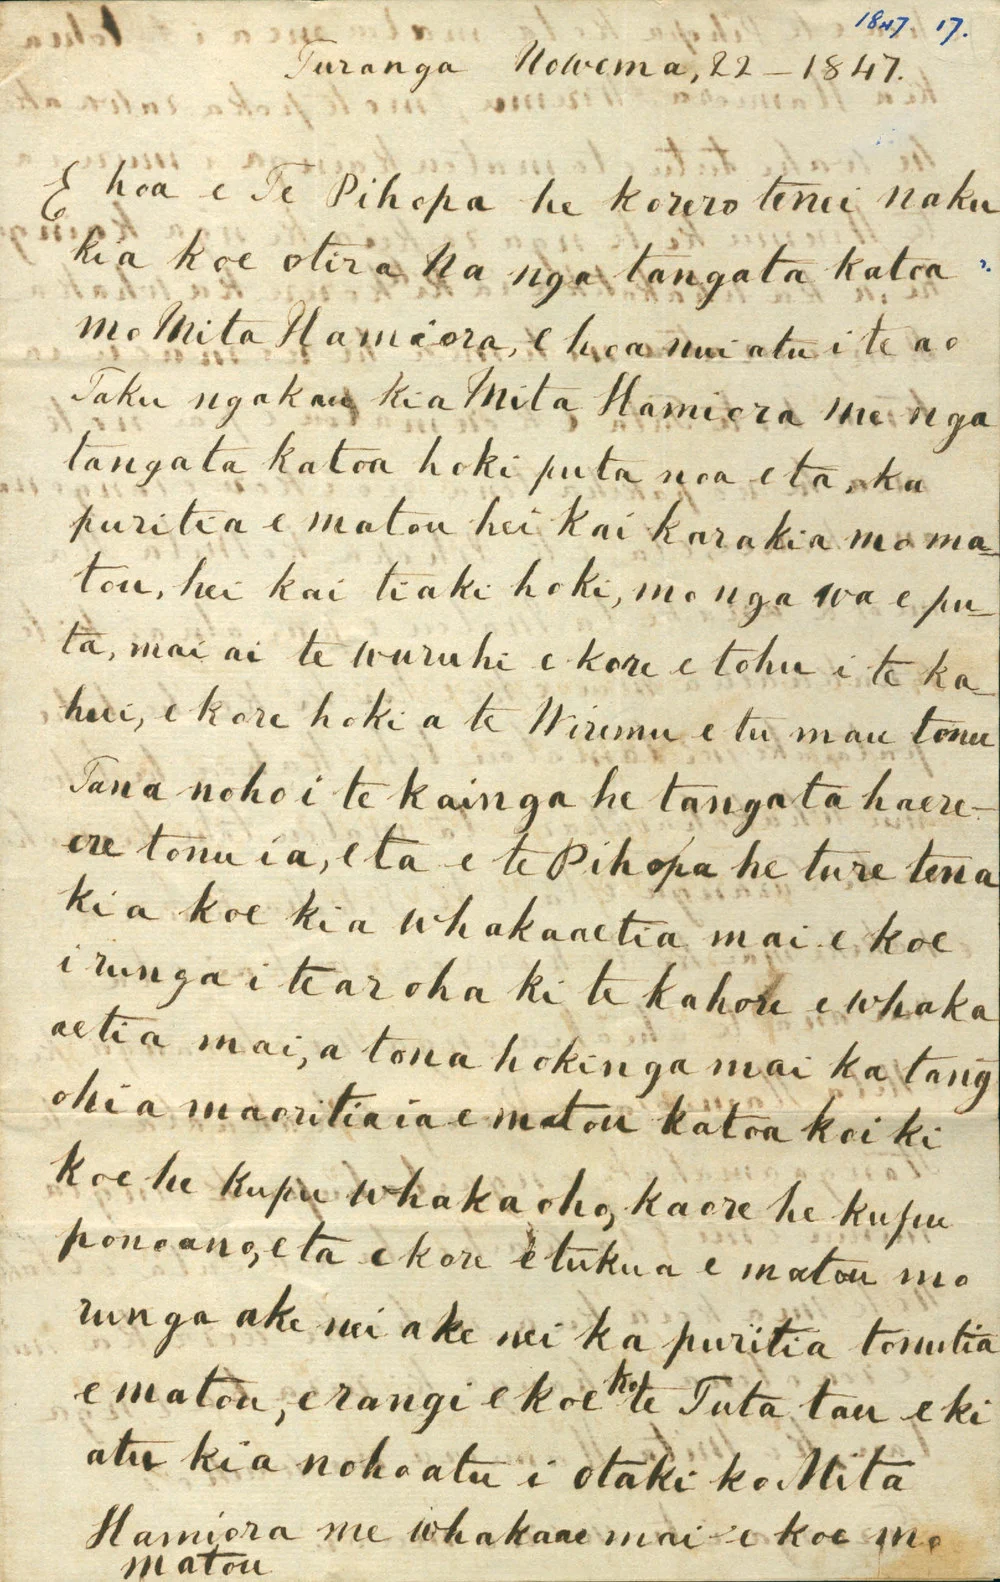 1847 17.
Turanga Nowema, 22 - 1847.
E hoa e Te Pihopa he korero tenei naku
kia koe otira Na nga tangata katoa
mo Mita Hamiora, e hoa nui atu i te ao
Taku ngakau kia Mita Hamiora me nga
tangata katoa hoki puta noa e ta, ka
puritia e matou hei kai karakia mo ma-
tou, hei kai tiaki hoki, mo nga wa e pu-
ta, mai ai te wuruhi e kore e tohu i te ka-
hui, e kore hoki a te Wiremu e tu mau tonu
Tana noho i te kainga he tangata haere-
ere tonu ia, e ta e te Pihopa he ture tena
kia koe kia whakaaetia mai e koe
i runga i te aroha ki te kahore e whaka
aetia mai, a tona hokinga mai ka tang
ohia maoritia ia e matou katoa koi ki
koe he kupu whakaoho, kaore he kupu
ponoano, e ta e kore e tukua e matou mo
runga ake nei ake nei ka puritia tonutia
e matou, erangi e koe ko te Tuta tau e ki
atu kia noho atu i otaki ko Mita
Hamiora me whakaae mai e koe mo
matou